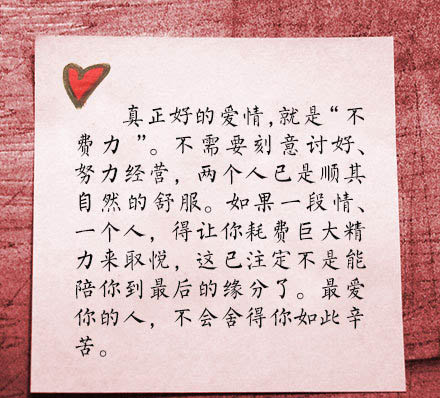 真正好的爱情,就是“不
费力”。不需要刻意讨好、
努力经营，两个人已是顺其
自然的舒服。如果一段情、
一个人，得让你耗费巨大精
力来取悦，这已注定不是能
陪你到最后的缘分了。最爱
你的人，不会舍得你如此辛
苦。